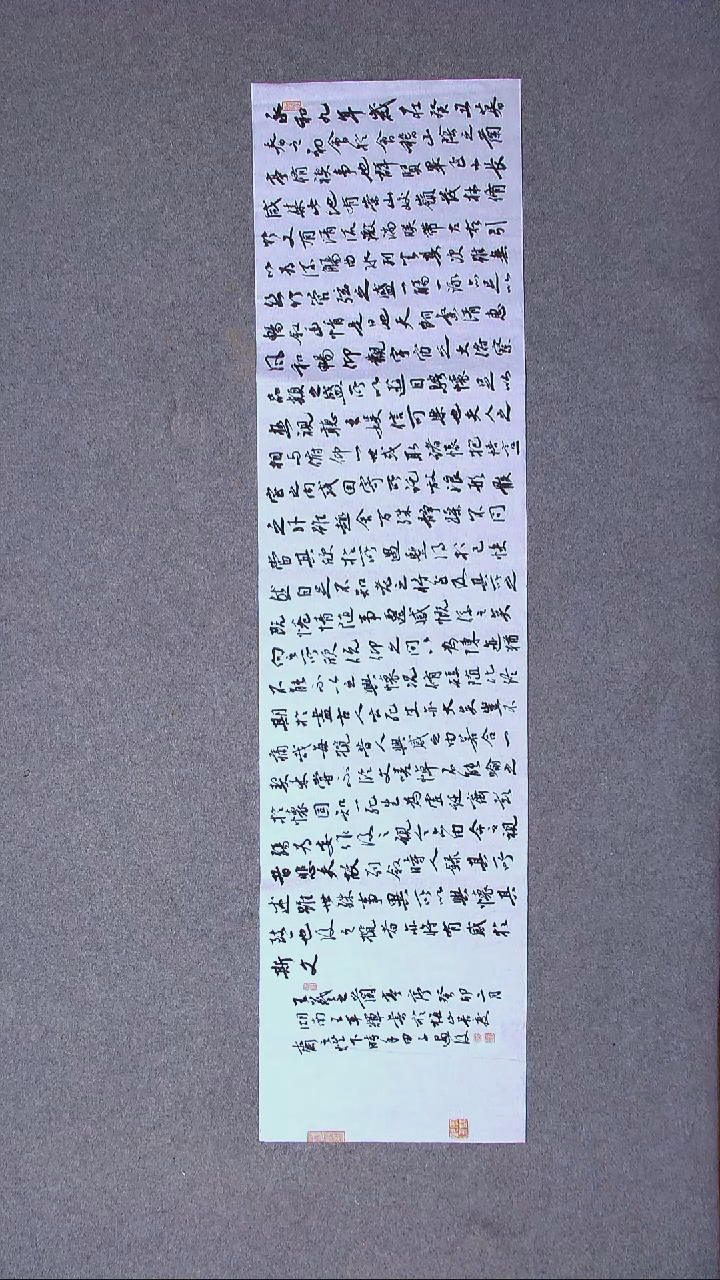 永和九年歲在癸丑暮
春之初會於會稽山陰之蘭
亭脩禊事也群賢畢至少長
咸集此地有崇山峻嶺茂林脩
竹又有清流激湍映帶左右引
以為流觴曲水列坐其次雖無
絲竹管弦之盛一觴一詠亦足以
暢敘幽情是日也天朗氣清惠
風和暢仰觀宇宙之大俯察
品類之盛所以遊目騁懷足以
極視聽之娛信可樂也夫人之
相与俯仰一世或取諸懷抱悟言一
室之內或因寄所託放浪形骸
之外雖趣舍萬殊靜躁不同
當其欣於所遇暫得於己快
然自足不知老之將至及其所之
既惓情隨事遷感慨係之矣
向之所欣俛仰之間以為陳迹猶
不能不以之興懷況脩短隨化終
期於盡古人云死生亦大矣豈不
痛哉每攬昔人興感之由若合一
契未嘗不臨文嗟悼不能喻之
於懷固知一死生為虛誕齊彭
殤為妄作後之視今亦由今之視
昔悲夫故列敘時人錄其所
述雖世殊事異所以興懷其
致一也後之攬者亦將有感於
斯文
王羲之蘭亭序癸卯二月
湖南王軍輝書於